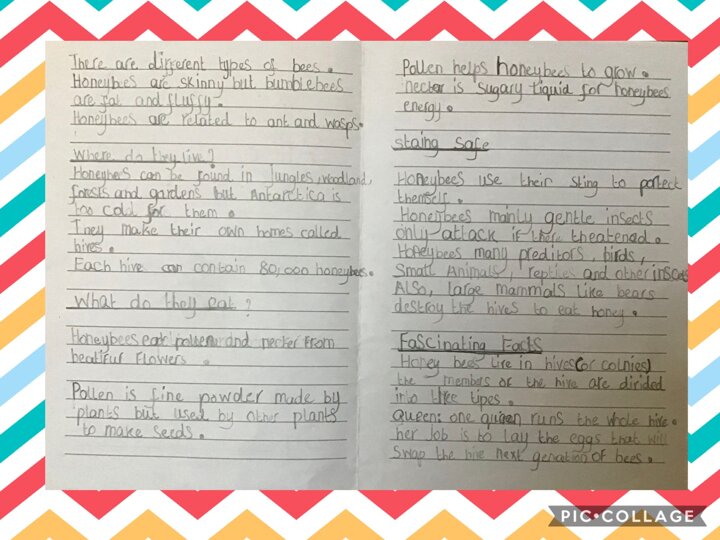 There are different types of bees.
Honeybies are skinny but bumblebees
are fat and fluffy.
Honeybees are related to ant and wasps.
Where do they live?
Honeybees can be found in jungles, woodland,
forests and gardens but Antarctica is
too cold for them.
They make their own homes called
hives.
Each hive can contain 80,000 honeybees.
What do they eat?
Honeybees eat pollen and necter from
beatiful flowers.
Pollen is fine powder made by
plants but used by other plants
to make seeds.
Pollen helps honeybees to grow.
necter is sugary liquid for honeybees
energy.
staing safe
Honeybees use their sting to portect
themself.
Honeybees manly gentle insects
only attack if there theatened.
Honeybees many preditors, birds,
small Animals, reptiles and other insects
Also, large mammals like bears
destroy the hives to eat honey.
Fascinating Facts
Honey bees live in hives (or colnies)
the members of the hive are divided
into types.
Queen: one queen runs the whole hive.
her job is to lay the eggs that will
swap the hive next genation of bees.
PIC•COLLAGE